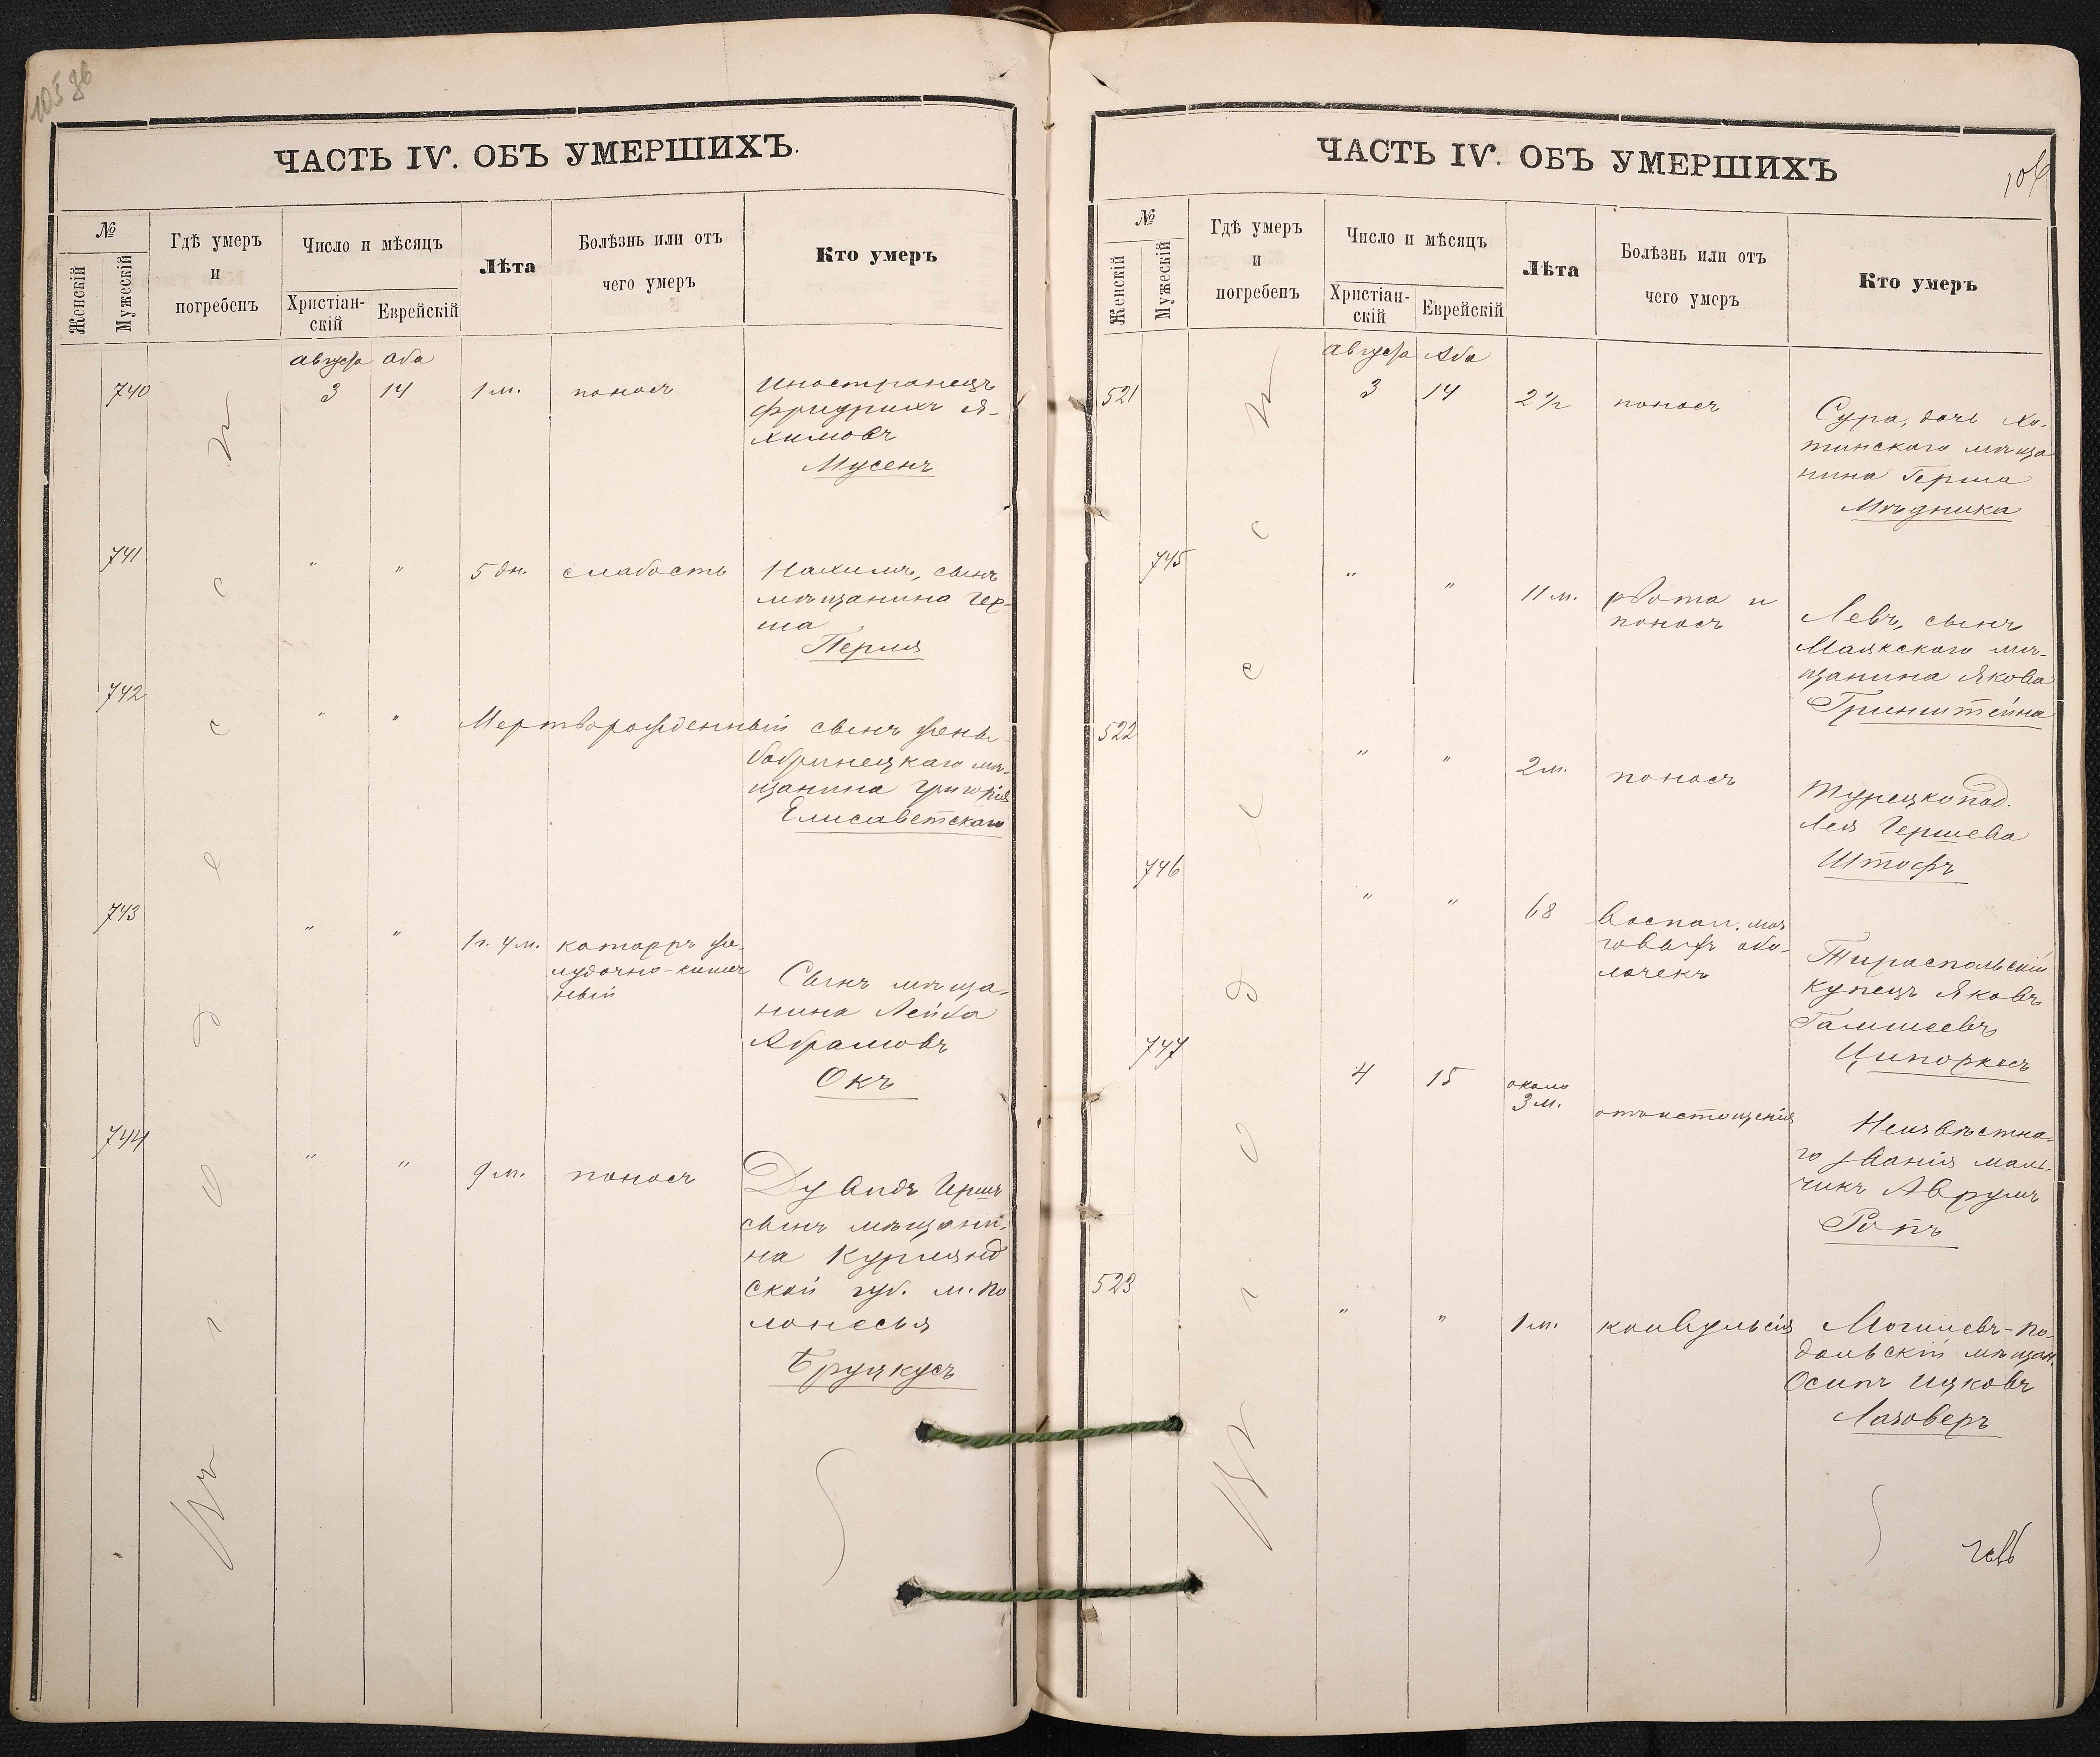 ЧАСТЬ IV. ОБЪ УМЕРШИХЪ.
№
Женскій
Мужескій
Гдѣ умеръ
и
погребенъ
Число и мѣсяцъ
Христіан-
скій
Еврейскій
Лѣта
Болѣзнь или отъ
чего умеръ
Кто умеръ
Въ г. Одессѣ
августа Аба
740 3 14 1 м. поносъ Иностранецъ
Фридрихъ Я-
химовъ
Мусенъ
741 " " 5 дн. слабость Нахимъ, сынъ
мѣщанина Гер-
ша
Перля
742 " " Мертворожденный сынъ жены
бобринецкаго мѣ-
щанина Григорія
Елисаветскаго
743 " " 1 г. 4 м. катарръ же-
лудочно-кишеч
ный
Сынъ мѣща-
нина Лейба
Абрамовъ
Окъ
744 " " 9 м. поносъ Дувидъ Гершъ
сынъ мѣщани-
на Курлянд
ской губ. м. По
лонесья
Бруцкусъ
ЧАСТЬ IV. ОБЪ УМЕРШИХЪ
106
№
Женскій
Мужескій
Гдѣ умеръ
и
погребенъ
Число и мѣсяцъ
Христіан-
скій
Еврейскій
Лѣта
Болѣзнь или отъ
чего умеръ
Кто умеръ
Въ г. Одессѣ
августа Аба
521 3 14 2 1/2 поносъ Сура, дочь Хо-
тинскаго мѣща
нина Герша
Мѣдника
745 " " 11 м. рвота и
поносъ
Левъ, сынъ
Маякскаго мѣ-
щанина Якова
Гринштейна
522 " " 2 м. поносъ Турецкопод.
Лея Гершева
Штофъ
746 " " 68 Воспал. моз
говыхъ обо-
лочекъ
Тираспольскій
купецъ Яковъ
Галшеевъ
Ципоркесъ
747 4 15 около
3 м. отъ истощенія Неизвѣстна-
го званія маль-
чикъ Аврумъ
Ропъ
523 " " 1 м. конвульсія Могилевъ-По-
дольскій мѣщан.
Осипъ Ицковъ
Лазоверъ